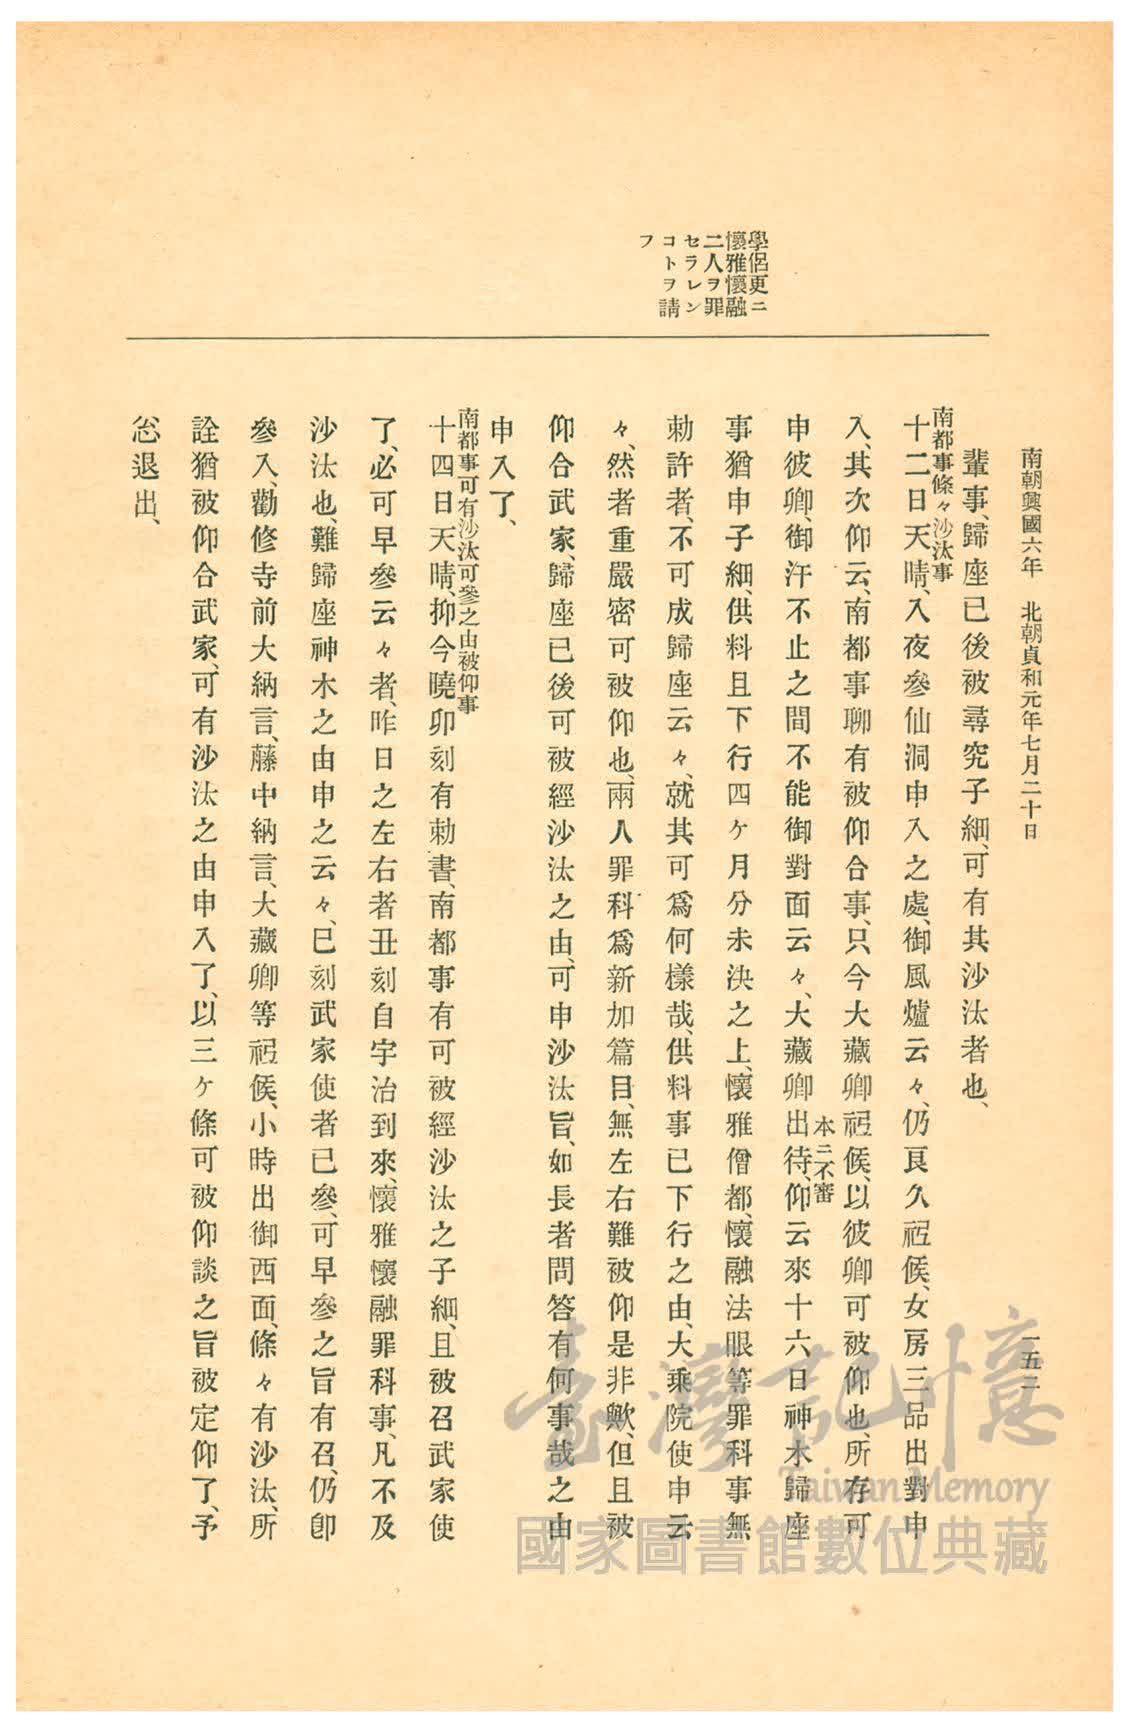 南朝興國六年　北朝貞和元年七月二十日
一五二
學侶更ニ
懷雅懷融
二人ヲ罪
セラレン
コトヲ請
フ
輩事、歸座已後被尋究子細、可有其沙汰者也、
南都事條々沙汰事
十二日天晴、入夜參仙洞申入之處、御風爐云々、仍良久祗候、女房三品出對申
入、其次仰云、南都事聊有被仰合事、只今大藏卿祗候、以彼卿可被仰也、所存可
本ニ不審
申彼卿、御汗不止之間不能御對面云々、大藏卿出待、仰云來十六日神木歸座
事猶申子細、供料且下行四ケ月分未決之上、懷雅僧都、懷融法眼等罪科事無
勅許者、不可成歸座云々、就其可爲何樣哉、供料事已下行之由、大乘院使申云
々、然者重嚴密可被仰也、兩人罪科爲新加篇目、無左右難被仰是非歟、但且被
仰合武家、歸座已後可被經沙汰之由、可申沙汰旨、如長者問答有何事哉之由
申入了、
南都事可有沙汰可參之由被仰事
十四日天晴、抑今曉卯刻有勅書、南都事有可被經沙汰之子細、且被召武家使
了、必可早參云々者、昨日之左右者丑刻自宇治到來、懷雅懷融罪科事、凡不及
沙汰也、難歸座神木之由申之云々、巳刻武家使者已參、可早參之旨有召、仍卽
參入、勸修寺前大納言、藤中納言、大藏卿等祗候、小時出御西面、條々有沙汰、所
詮猶被仰合武家、可有沙汰之由申入了、以三ケ條可被仰談之旨被定仰了、予
忩退出、
臺灣記憶
Taiwan Memory
國家圖書館數位典藏